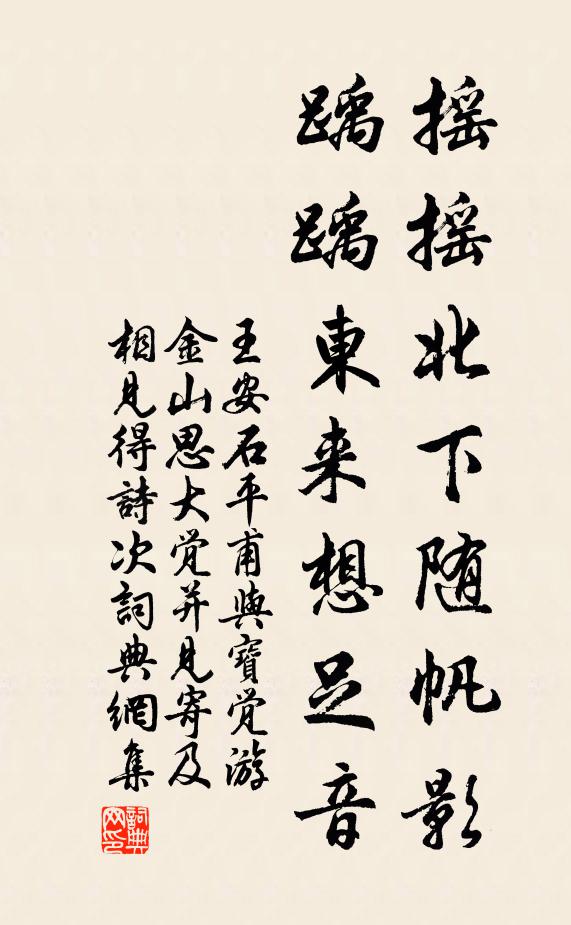 摇摇北下随帆影
踽踽東来想足音
王安石平甫與寶觉游
金山思大觉并見寄及
相見得詩次詞典網集
詞典
网印